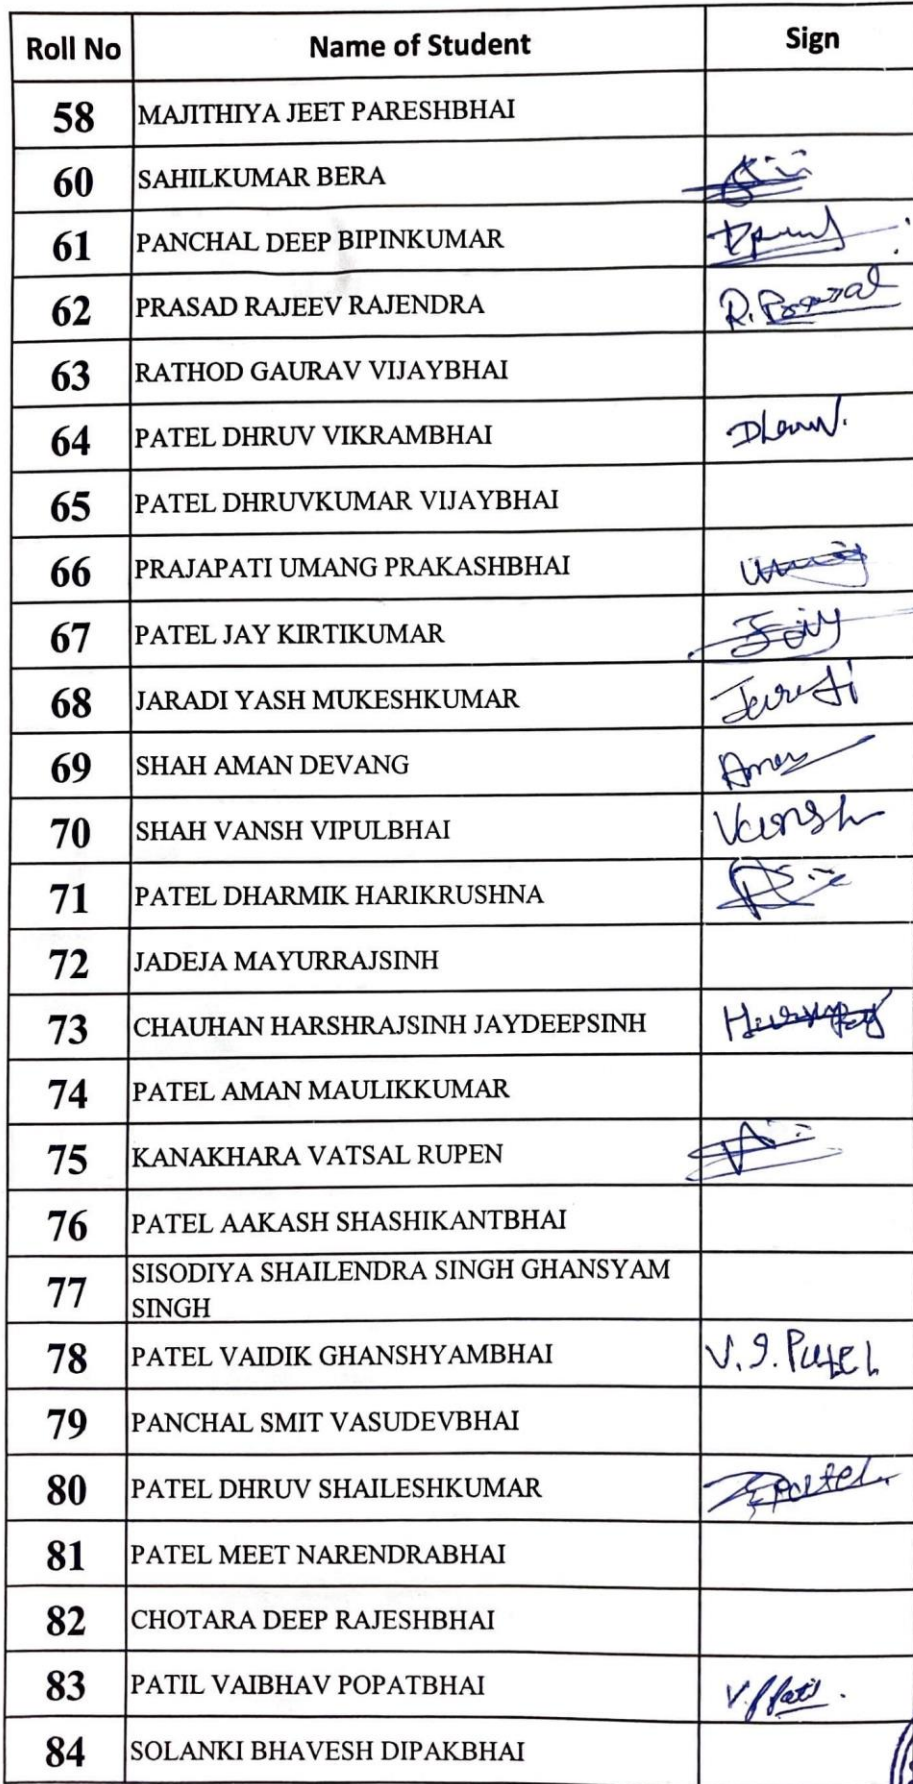 Roll No Name of Student Sign
58 MAJITHIYA JEET PARESHBHAI
60 SAHILKUMAR BERA
61 PANCHAL DEEP BIPINKUMAR
62 PRASAD RAJEEV RAJENDRA R. Prasad
63 RATHOD GAURAV VIJAYBHAI
64 PATEL DHRUV VIKRAMBHAI Dhruv.
65 PATEL DHRUVKUMAR VIJAYBHAI
66 PRAJAPATI UMANG PRAKASHBHAI Umang
67 PATEL JAY KIRTIKUMAR
68 JARADI YASH MUKESHKUMAR Jaradi
69 SHAH AMAN DEVANG Aman
70 SHAH VANSH VIPULBHAI Vansh
71 PATEL DHARMIK HARIKRUSHNA
72 JADEJA MAYURRAJSINH
73 CHAUHAN HARSHRAJSINH JAYDEEPSINH
74 PATEL AMAN MAULIKKUMAR
75 KANAKHARA VATSAL RUPEN
76 PATEL AAKASH SHASHIKANTBHAI
77 SISODIYA SHAILENDRA SINGH GHANSYAM
SINGH
78 PATEL VAIDIK GHANSHYAMBHAI V. G. Patel
79 PANCHAL SMIT VASUDEVBHAI
80 PATEL DHRUV SHAILESHKUMAR Patel.
81 PATEL MEET NARENDRABHAI
82 CHOTARA DEEP RAJESHBHAI
83 PATIL VAIBHAV POPATBHAI V.P.Patil.
84 SOLANKI BHAVESH DIPAKBHAI